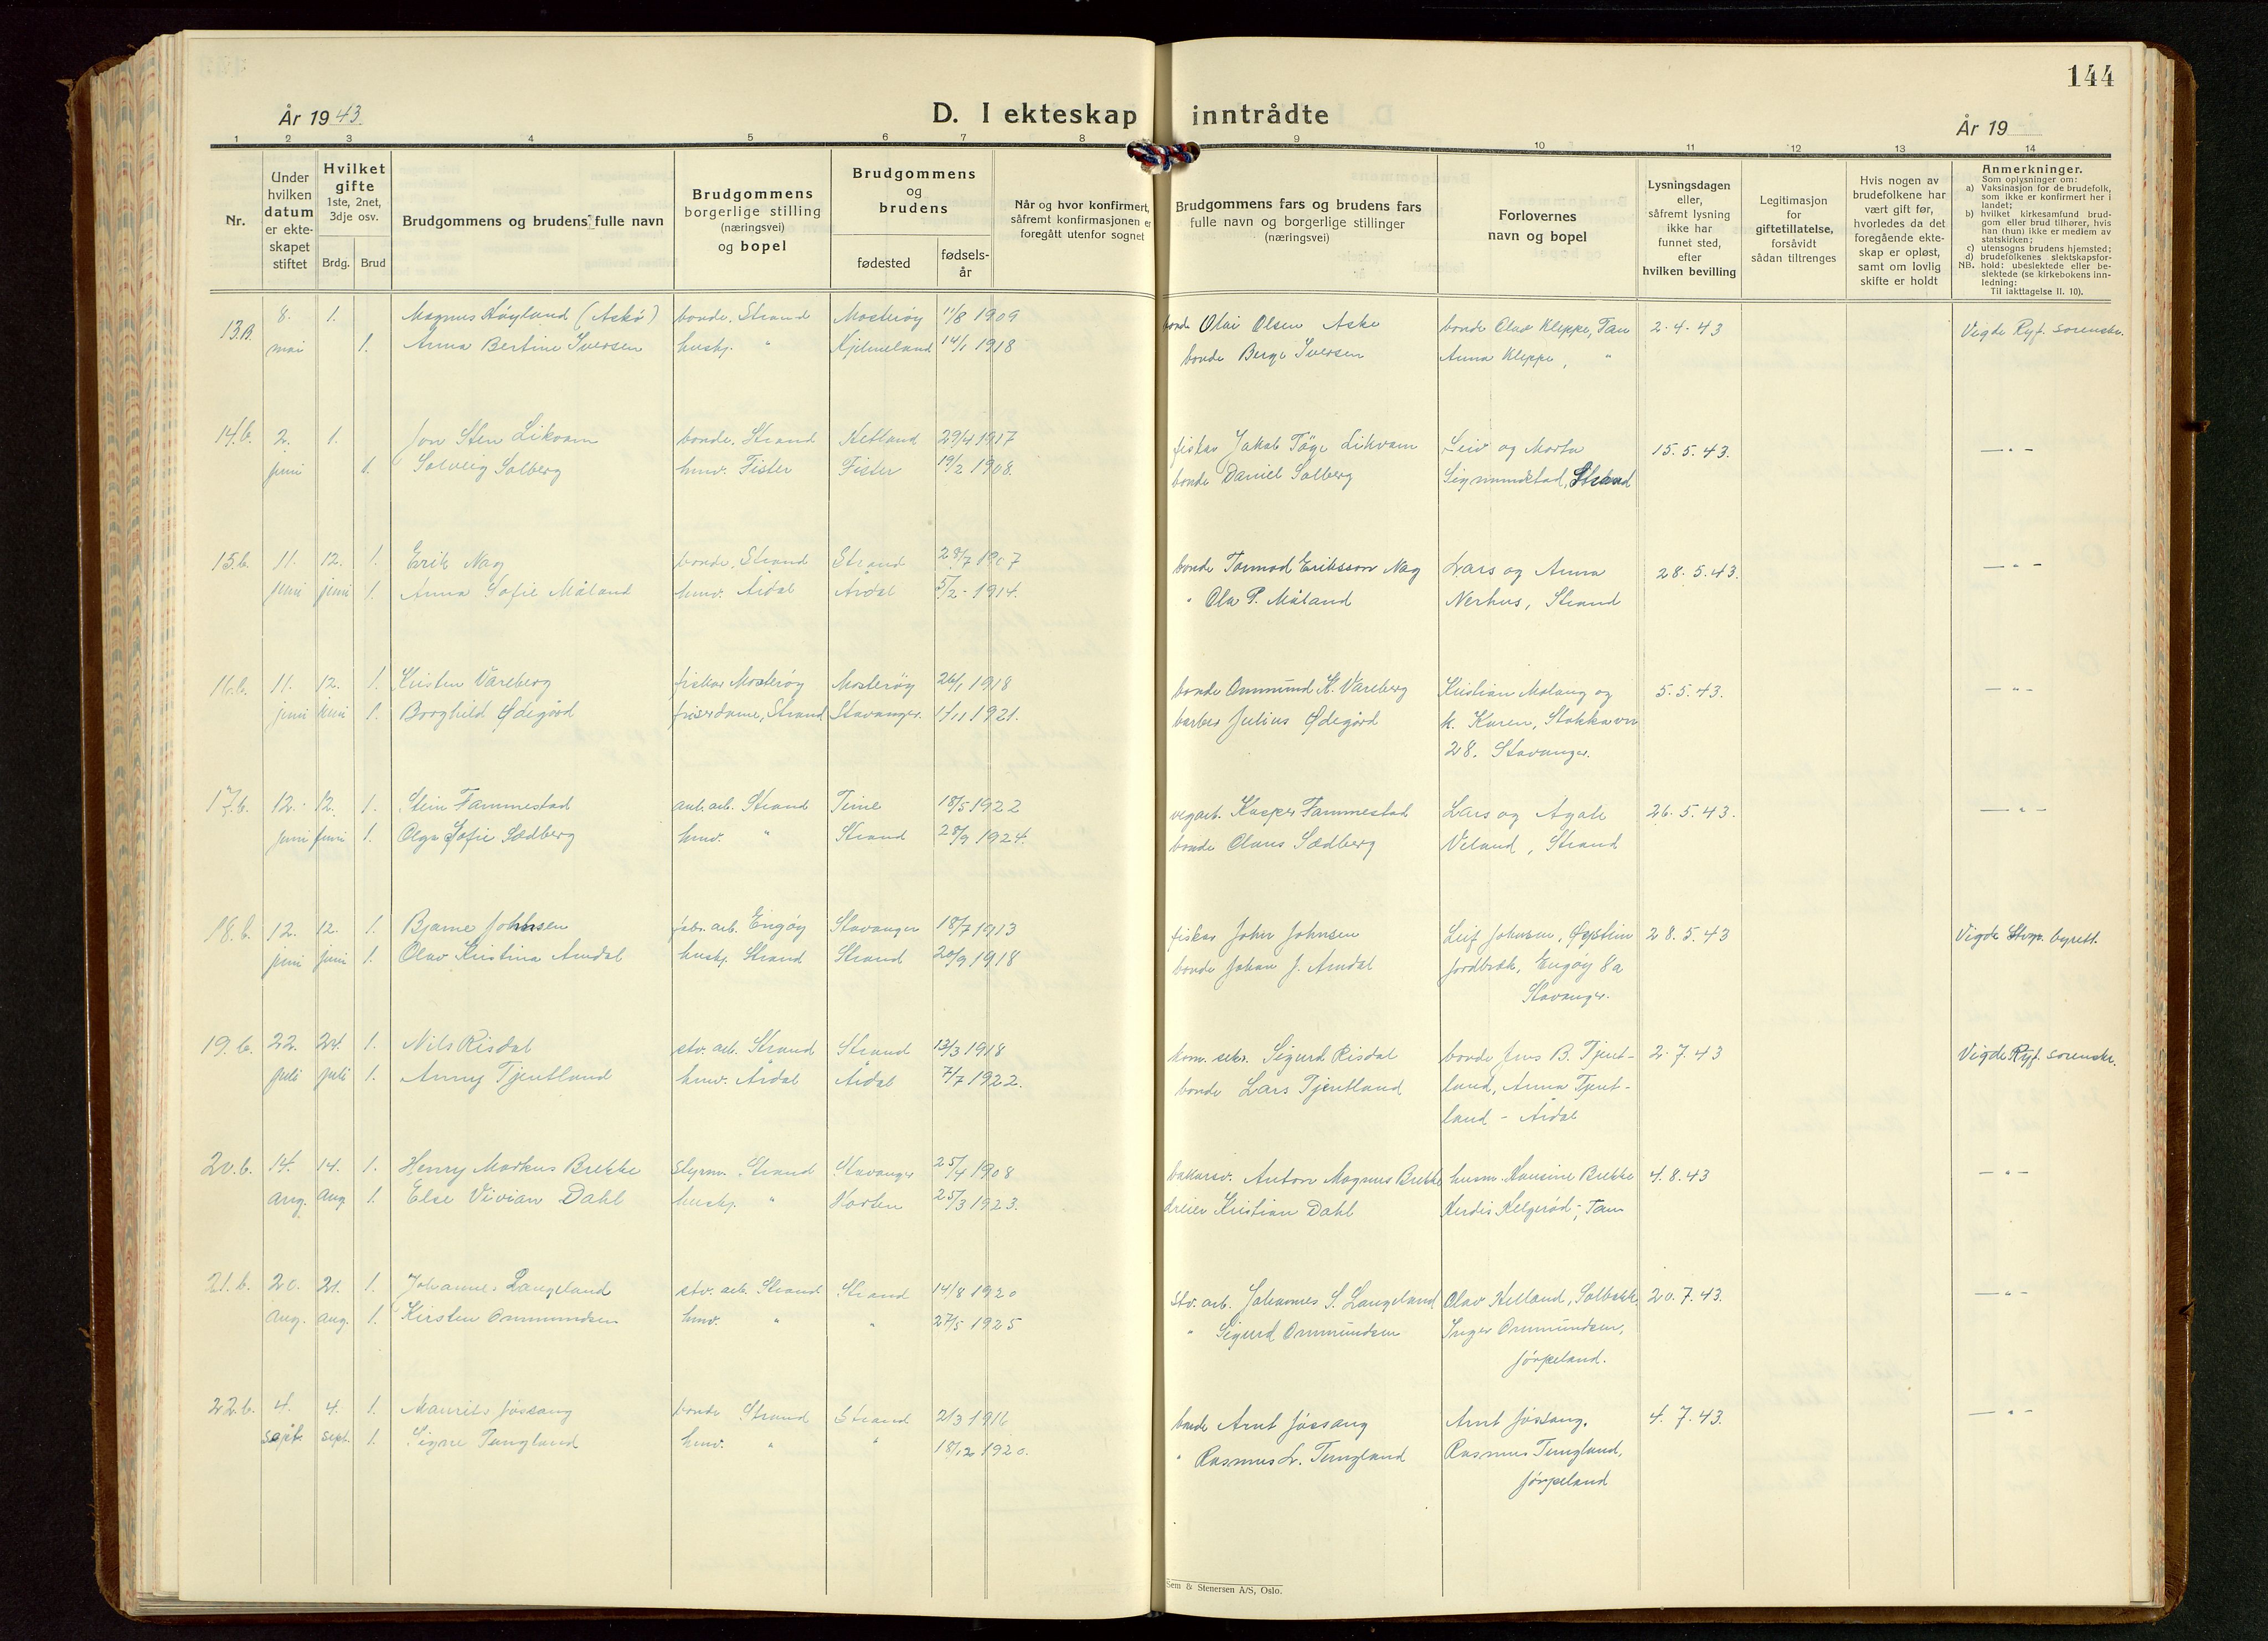 144
År 1943
D. I ekteskap inntrådte
År 19
1 2 3 4 5 6 7 8 9 10 11 12 13 14
Nr.
Under hvilken datum er ekteskapet stiftet
Hvilket gifte 1ste, 2net, 3dje osv.
Brdg. Brud
Brudgommens og brudens fulle navn
Brudgommens borgerlige stilling (næringsvei) og bopel
Brudgommens og brudens
fødested
fødsels-år
Når og hvor konfirmert, såfremt konfirmasjonen er foregått utenfor sognet
Brudgommens fars og brudens fars fulle navn og borgerlige stillinger (næringsvei)
Forlovernes navn og bopel
Lysningsdagen eller, såfremt lysning ikke har funnet sted, efter hvilken bevilling
Legitimasjon for giftetillatelse, forsåvidt sådan tiltrenges
Hvis nogen av brudefolkene har vært gift før, hvorledes da det foregående ekteskap er opløst, samt om lovlig skifte er holdt
Anmerkninger.
Som oplysninger om:
a) Vaksinasjon for de brudefolk, som ikke er konfirmert her i landet;
b) hvilket kirkesamfund brudgom eller brud tilhører, hvis han (hun) ikke er medlem av statskirken;
c) utensogns brudens hjemsted;
d) brudefolkenes slektskapsforhold: ubeslektede eller beslektede (se kirkebokens innledning:
NB. Til iakttagelse II. 10).
13.B. 8. 1. Magnus Høyland (Askø) bonde, Strand Mosterøy 11/8 1909 bonde Olai Olsen Aske bonde Olav Kleppe, Tau 2.4.43 Vigde Ryf. sorenskr.
mai 1. Anna Bertine Iversen hushj. " 14/1 1918 bonde Berge Iversen Anna Kleppe, "
14.b. 2. 1. Jon Sten Likvam bonde, Strand Hetland 29/4 1917 fisker Jakob Töge Likvam Leiv og Marta 15.5.43. — " —
juni 1. Solveig Solberg hmv. Fister Fister 19/2 1908. bonde Daniel Solberg Sigmundstad, Strand
15.b. 11. 12. 1. Erik Nag bonde, Strand Strand 28/7 1907 bonde Tormod Eriksson Nag Lars og Anna 28.5.43. — " —
juni juni 1. Anna Sofie Måland hmv. Årdal Årdal 5/2 - 1914. " Ola P. Måland Nerhus, Strand
16.b. 11. 12. 1. Kristen Våreberg fisker Mosterøy Mosterøy 26/1 1918 bonde Ommund K. Våreberg Kristian Malang og 5.5.43. — " —
juni juni 1. Borghild Ødegård friserdame, Strand Stavanger. 1/11 1921. barber Julius Ødegård k. Karen, Stokkavn
28. Stavanger.
17.b. 12. 12. 1. Stein Tammestad anl.arb. Strand Time 18/5 1922 vegarb. Kasper Tammestad Lars og Agate 26.5.43. — " —
juni juni 1. Olga Sofie Sædberg hmv. " Strand 28/9 1924. bonde Olaus Sædberg Veland, Strand
18.b. 12. 12. 1. Bjarne Johnsen fabr. arb. Engøy Stavanger 18/7 1913 fisker John Johnsen Leif Johnsen, Øystein 28.5.43 Vigde Stvgr. byrett.
juni juni 1. Olav Kristina Amdal hushj. Strand Strand 20/9 1918 bonde Johan J. Amdal Jordbrek, Engøy 8a
Stavanger.
19.b. 22. 24. 1. Nils Risdal stv. arb. Strand Strand 13/3 1918 kom. sekr. Sigurd Risdal bonde Jens B. Tjent- 2.7.43 Vigde Ryf. sorenskr.
juli juli 1. Anny Tjentland hmv. Årdal Årdal 7/7 1922. bonde Lars Tjentland land, Anna Tjent-
land - Årdal
20.b. 14. 14. 1. Henry Markus Brekke Styrm. Strand Stavanger 25/4 1908 bakersv. Anton Magnus Brekke husm. Hansine Brekke 4.8.43 — " —
aug. aug 1. Else Vivian Dahl hushj. " Horten 25/3 1923. dreier Kristian Dahl Herdis Helgerød, Tau
21.b. 20. 21. 1. Johannes Langeland stv. arb. Strand Strand 14/8 1920 stv. arb. Johannes S. Langeland Olav Helland, Solbakk 20.7.43. — " —
aug. aug. 1. Kirsten Ommundsen hmv. " " 27/5 1925 " Sigurd Ommundsen Inger Ommundsen,
Jørpeland.
22.b. 4. 4. 1. Maurits Jøssang bonde Strand Strand 2/3 1916 bonde Arnt Jøssang Arnt Jøssang. 4.7.43. — " —
sept. sept. 1. Signe Tungland hmv. " " 18/12 1920. " Rasmus L. Tungland Rasmus Tungland,
Jørpeland
Sem & Stenersen A/S, Oslo.